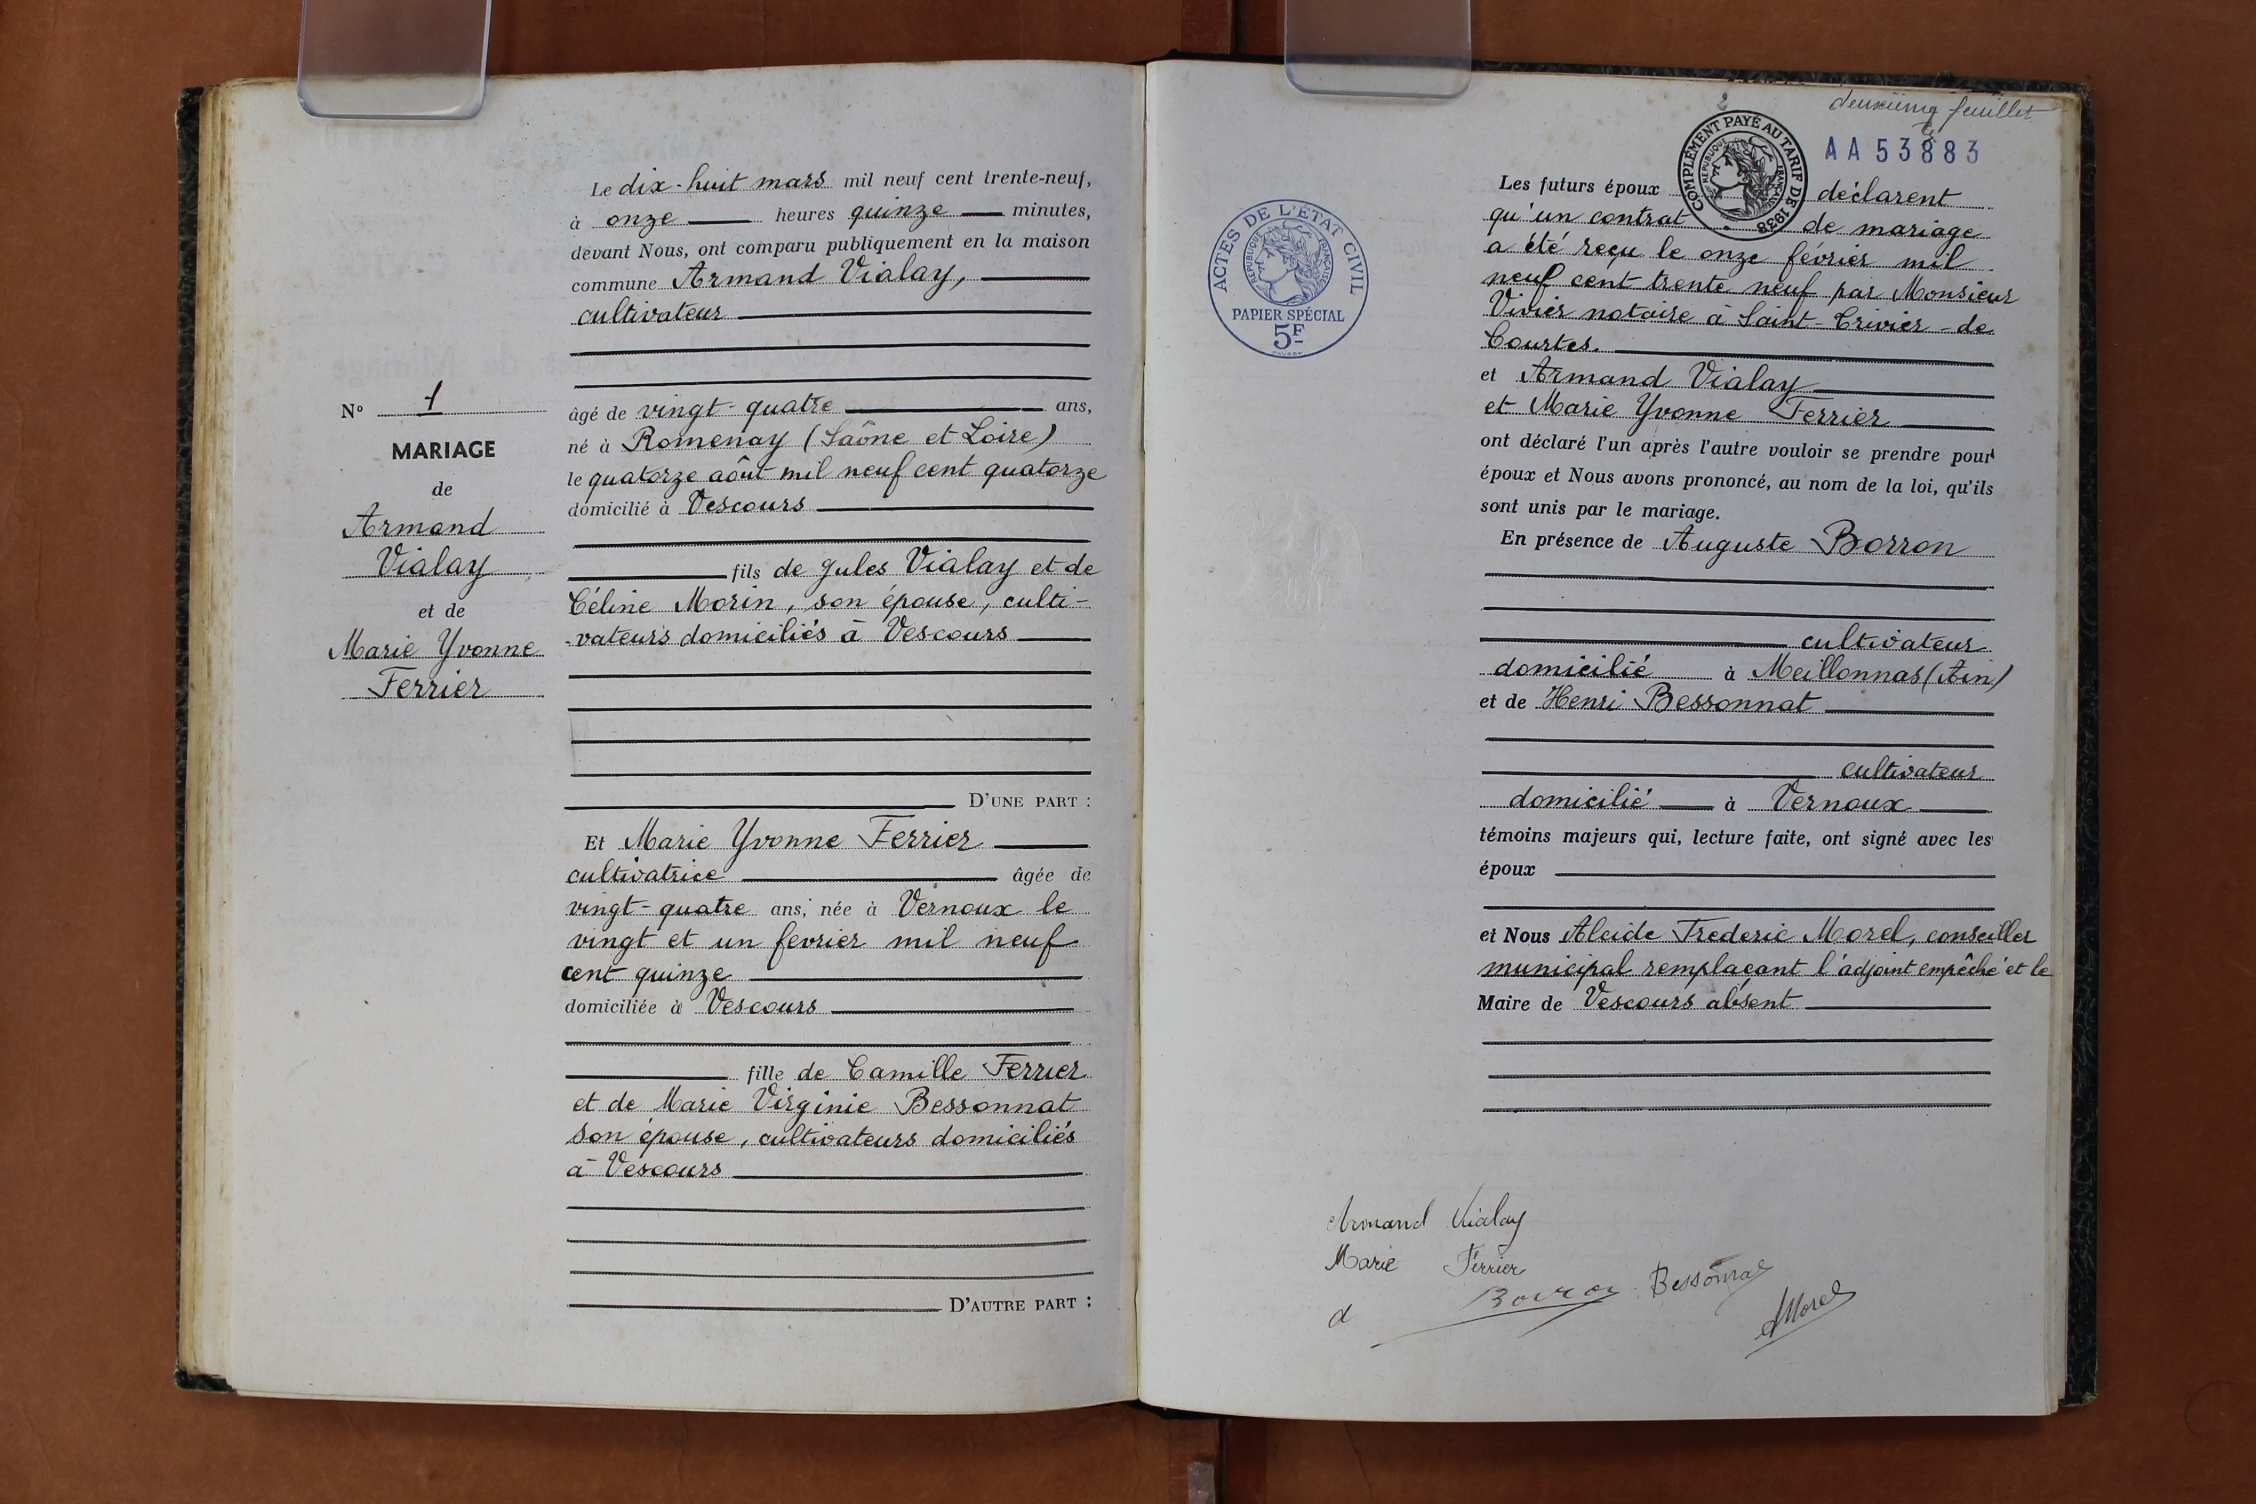 Le dix-huit mars mil neuf cent trente-neuf,
à onze heures quinze minutes,
devant Nous, ont comparu publiquement en la maison
commune Armand Vialay,
cultivateur
âgé de vingt-quatre ans,
né à Romenay (Saône et Loire)
le quatorze août mil neuf cent quatorze
domicilié à Vescours
fils de Jules Vialay et de
Céline Morin, son épouse, culti-
-vateurs domiciliés à Vescours
D'UNE PART :
Et Marie Yvonne Ferrier
cultivatrice âgée de
vingt-quatre ans, née à Vernoux le
vingt et un fevrier mil neuf
cent quinze
domiciliée à Vescours
fille de Camille Ferrier
et de Marie Virginie Bessonnat
son épouse, cultivateurs domiciliés
à Vescours
D'AUTRE PART :
N° 1
MARIAGE
de
Armand
Vialay
et de
Marie Yvonne
Ferrier
2
deuxième feuillet
AA 53883
COMPLÉMENT PAYÉ AU TARIF DE 1938
RÉPUBLIQUE FRANÇAISE
ACTES DE L'ÉTAT CIVIL
RÉPUBLIQUE FRANÇAISE
PAPIER SPÉCIAL
5F
Les futurs époux déclarent
qu'un contrat de mariage
a été reçu le onze février mil
neuf cent trente neuf par Monsieur
Vivier notaire à Saint-Trivier-de
Courtes.
et Armand Vialay
et Marie Yvonne Ferrier
ont déclaré l'un après l'autre vouloir se prendre pour
époux et Nous avons prononcé, au nom de la loi, qu'ils
sont unis par le mariage.
En présence de Auguste Borron
cultivateur
domicilié à Meillonnas (Ain)
et de Henri Bessonnat
cultivateur
domicilié à Vernoux
témoins majeurs qui, lecture faite, ont signé avec les
époux
et Nous Alcide Frederic Morel, conseiller
municipal remplaçant l'adjoint empêché et le
Maire de Vescours absent
Armand Vialay
Marie Ferrier
Borron Bessonnat
AMorel